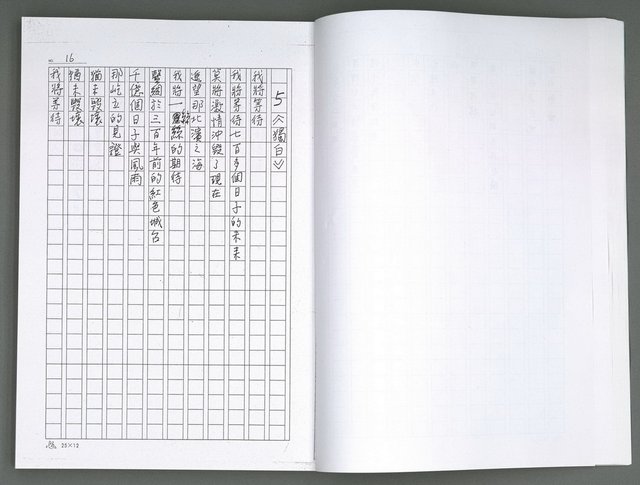 16
5 《獨白》
我將等待
我將等待七百多個日子的未來
莫將激情沖毀了現在
遙望那北濱之海
我將一絲絲的期待
緊綑於三百年前的紅色城台
千億個日子與風雨
那屹立的見證
猶未毀壞
猶未毀壞
我將等待
25×12